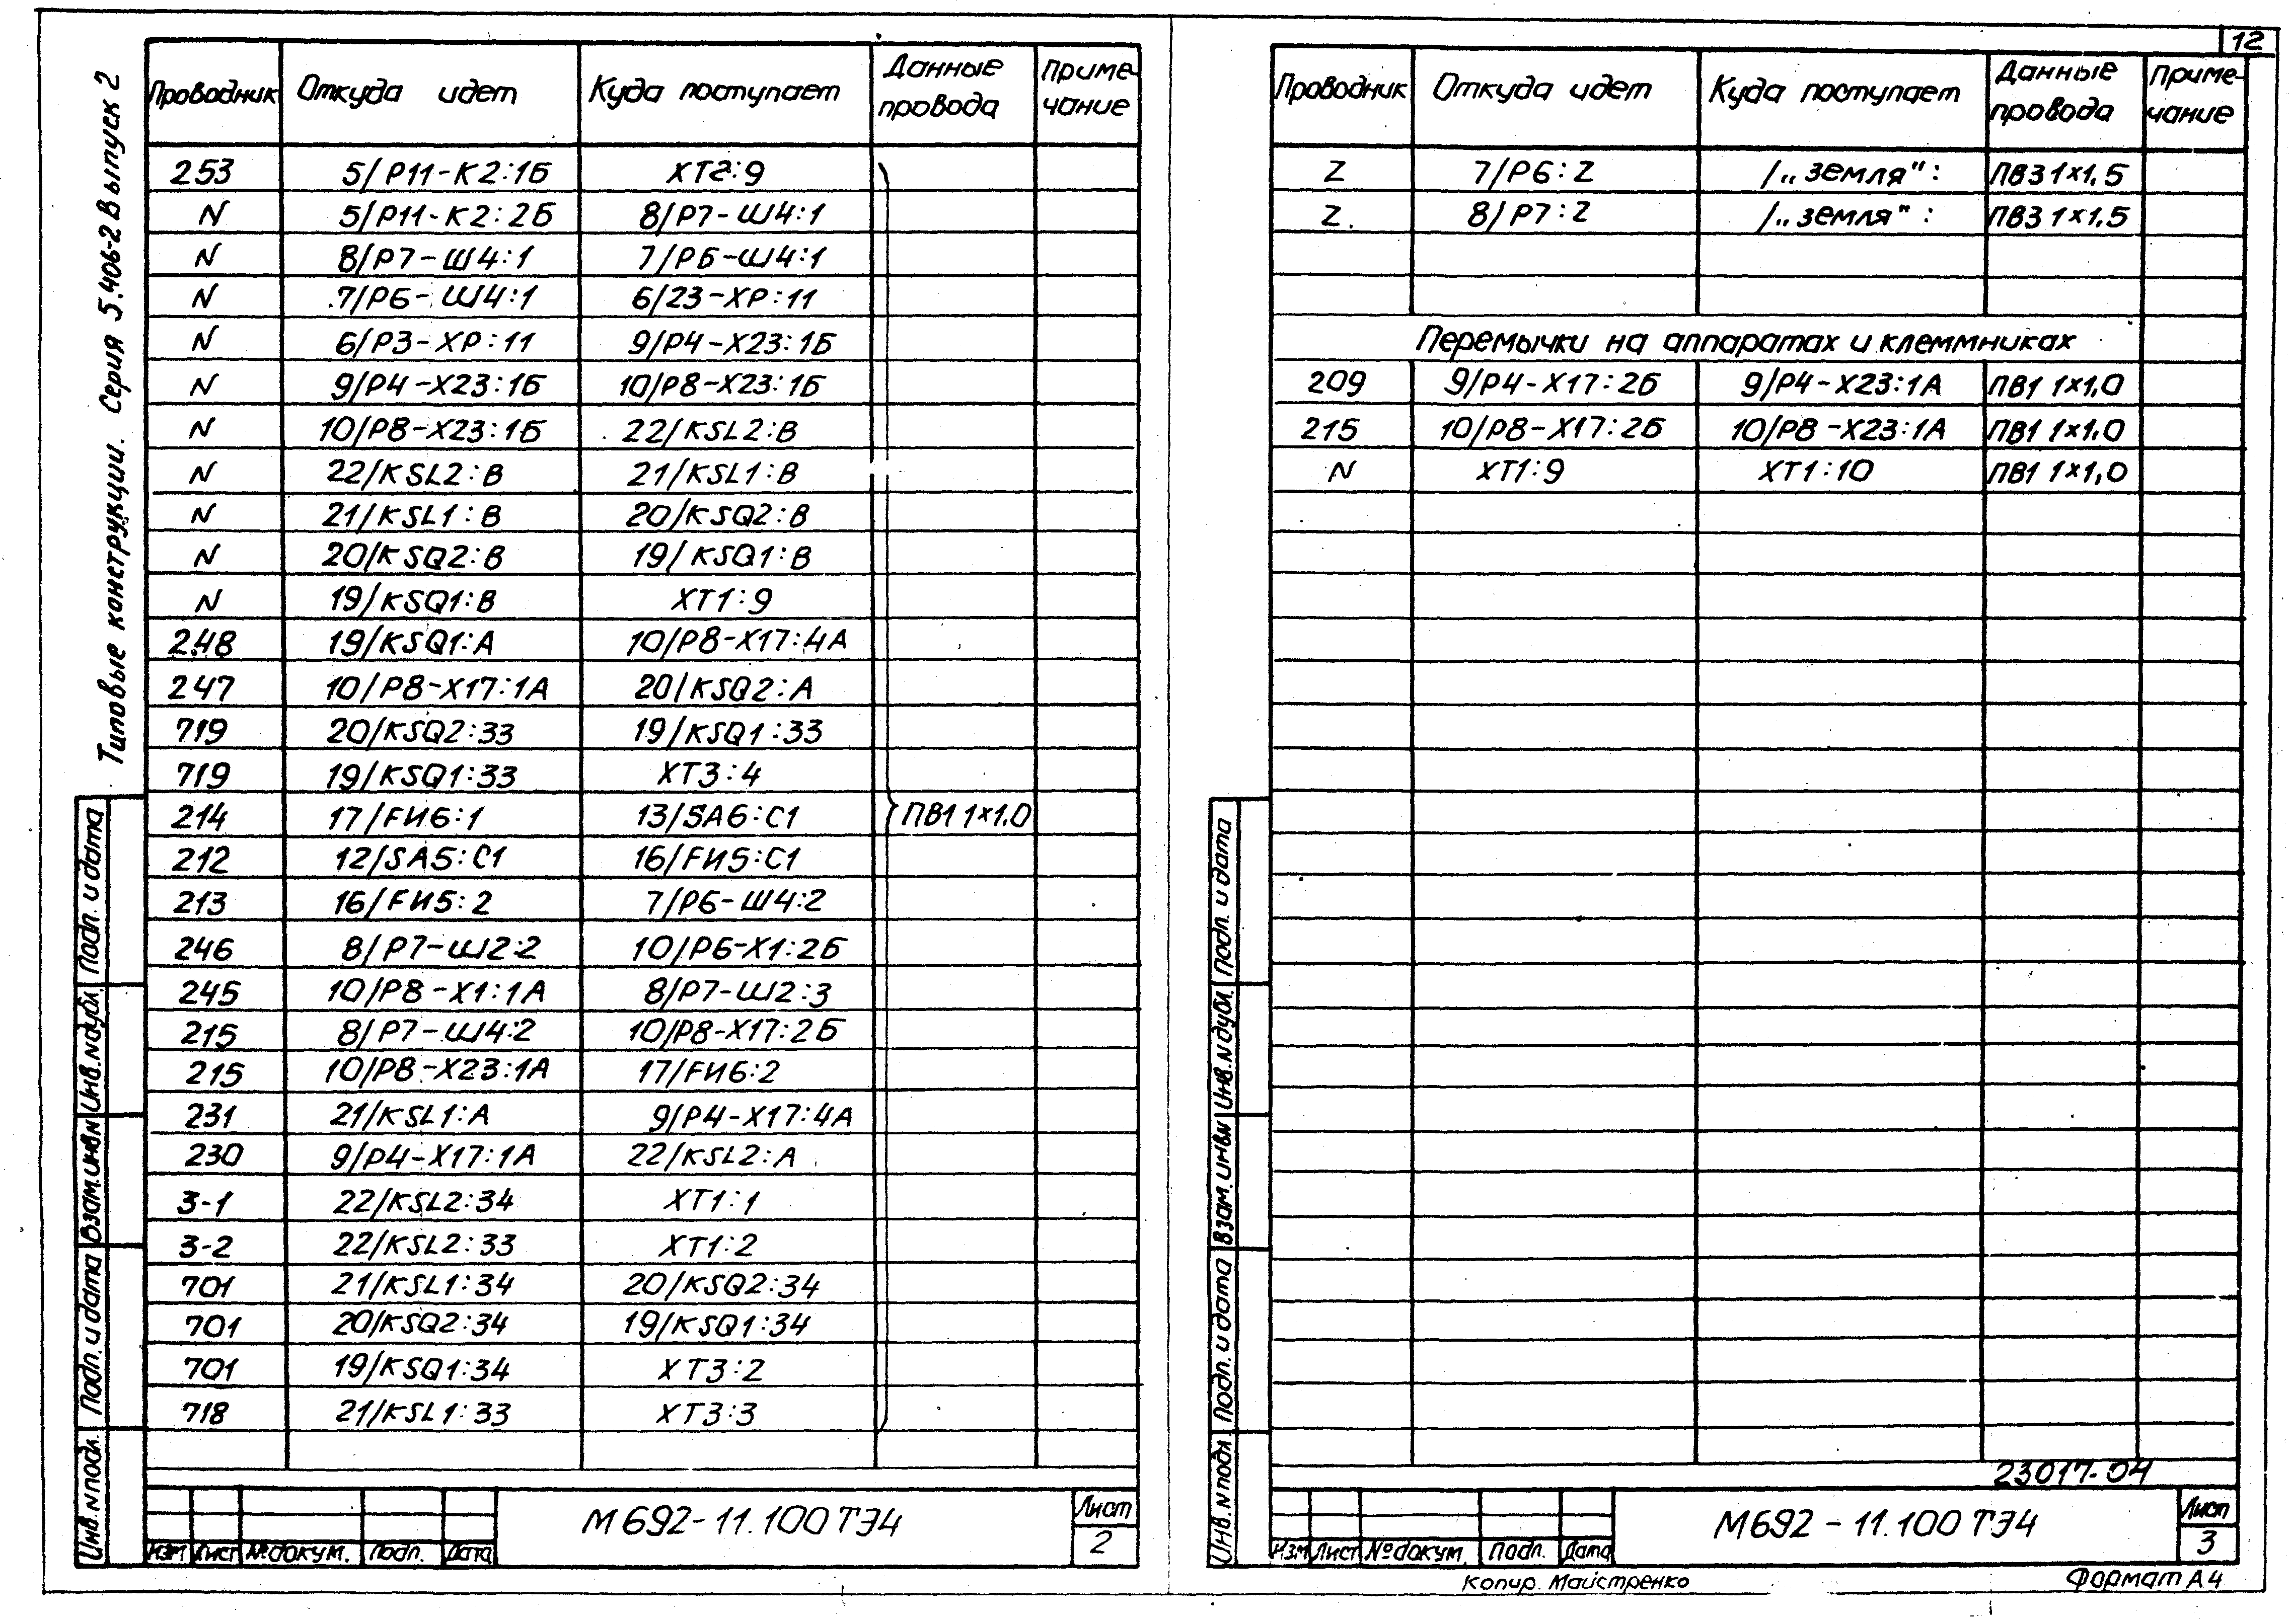 Типовые конструкции. Серия 5.406-2 Выпуск 2
Проводник Откуда идет Куда поступает Данные провода Приме-чание
253 5/Р11-К2:1Б ХТ2:9
N 5/Р11-К2:2Б 8/Р7-Ш4:1
N 8/Р7-Ш4:1 7/Р6-Ш4:1
N 7/Р6-Ш4:1 6/23-ХР:11
N 6/Р3-ХР:11 9/Р4-Х23:1Б
N 9/Р4-Х23:1Б 10/Р8-Х23:1Б
N 10/Р8-Х23:1Б 22/KSL2:В
N 22/KSL2:В 21/KSL1:В
N 21/KSL1:В 20/KSQ2:В
N 20/KSQ2:В 19/KSQ1:В
N 19/KSQ1:В ХТ1:9
248 19/KSQ1:А 10/Р8-Х17:4А
247 10/Р8-Х17:1А 20/KSQ2:А
719 20/KSQ2:33 19/KSQ1:33
719 19/KSQ1:33 ХТ3:4
214 17/FИ6:1 13/SA6:С1 ПВ1 1×1.0
212 12/SA5:С1 16/FИ5:С1
213 16/FИ5:2 7/Р6-Ш4:2
246 8/Р7-Ш2:2 10/Р6-Х1:2Б
245 10/Р8-Х1:1А 8/Р7-Ш2:3
215 8/Р7-Ш4:2 10/Р8-Х17:2Б
215 10/Р8-Х23:1А 17/FИ6:2
231 21/KSL1:А 9/Р4-Х17:4А
230 9/Р4-Х17:1А 22/KSL2:А
3-1 22/KSL2:34 ХТ1:1
3-2 22/KSL2:33 ХТ1:2
701 21/KSL1:34 20/KSQ2:34
701 20/KSQ2:34 19/KSQ1:34
701 19/KSQ1:34 ХТ3:2
718 21/KSL1:33 ХТ3:3
Подп. и дата
Инв.N дубл.
Взам.инв.N
Подп. и дата
Инв.N подл.
Изм Лист №докум. Подп. Дата
М692-11.100ТЭ4
Лист
2
12
Проводник Откуда идет Куда поступает Данные провода Приме-чание
Z 7/Р6:Z /„земля": ПВ3 1×1,5
Z 8/Р7:Z /„земля": ПВ3 1×1,5
Перемычки на аппаратах и клеммниках
209 9/Р4-Х17:2Б 9/Р4-Х23:1А ПВ1 1×1,0
215 10/Р8-Х17:2Б 10/Р8-Х23:1А ПВ1 1×1,0
N ХТ1:9 ХТ1:10 ПВ1 1×1,0
Подп. и дата
Инв.N дубл.
Взам.инв.N
Подп. и дата
Инв.N подл.
23017-04
Изм Лист №докум. Подп. Дата
М692-11.100ТЭ4
Лист
3
Копир. Майстренко
Формат А4